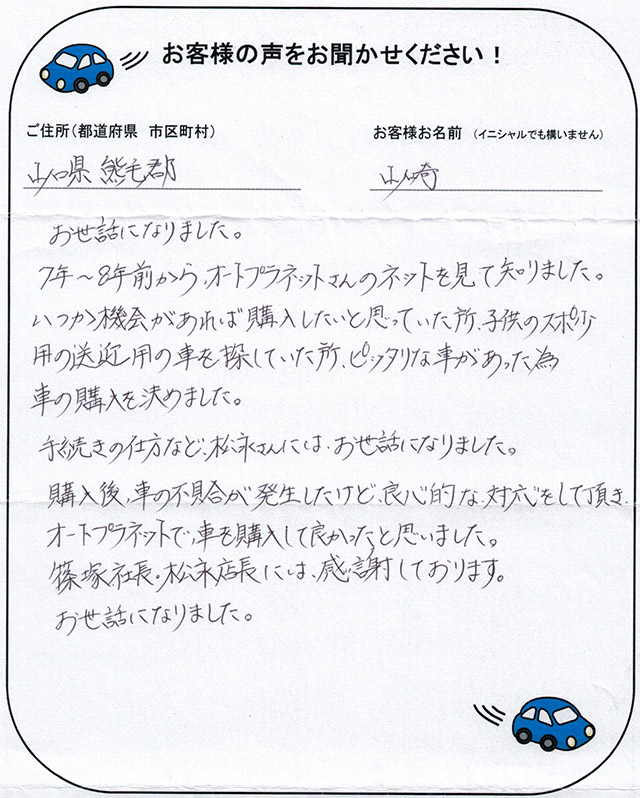 お客様の声をお聞かせください！
ご住所（都道府県　市区町村）
お客様お名前　（イニシャルでも構いません）
山口県 熊毛郡
山崎
お世話になりました。
7年～8年前から、オートプラネットさんのネットを見て知りました。
いつか機会があれば購入したいと思っていた所、子供のスポ少
用の送迎用の車を探していた所、ピッタリな車があった為
車の購入を決めました。
手続きの仕方など、松永さんには、お世話になりました。
購入後、車の不具合が発生したけど、良心的な対応をして頂き、
オートプラネットで、車を購入して良かったと思いました。
篠塚社長・松永店長には、感謝しております。
お世話になりました。